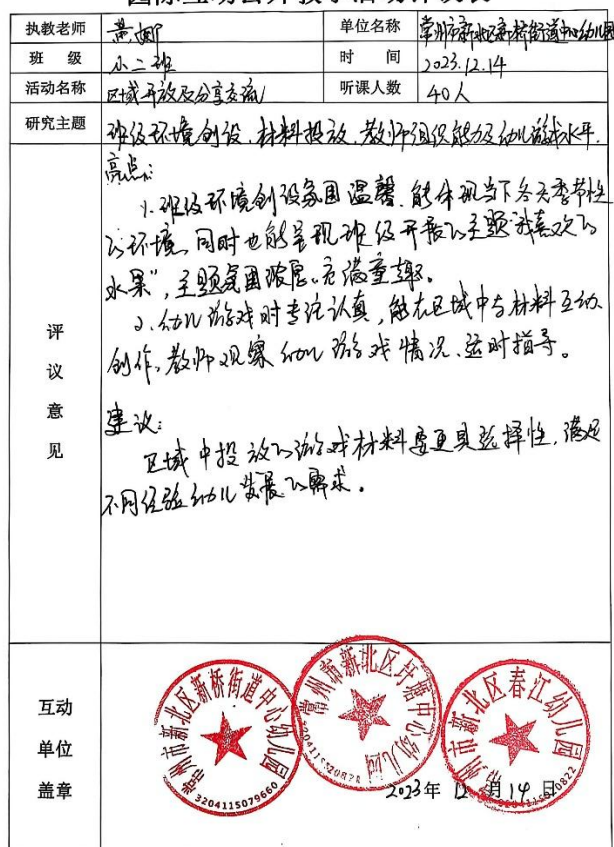 国际互动公开教学活动评议表
执教老师 黄娜 单位名称 常州市新北区新桥街道中心幼儿园
班 级 小二班 时 间 2023.12.14
活动名称 区域开放及分享交流 听课人数 40人
研究主题 班级环境创设、材料投放、教师组织能力及幼儿游戏水平.
评议意见
亮点:
1. 班级环境创设氛围温馨、能体现当下冬天季节性
的环境,同时也能呈现班级开展的主题“我喜欢的
水果”,主题氛围浓厚、充满童趣。
2. 幼儿游戏时专注认真,能在区域中与材料互动、
创作,教师观察幼儿游戏情况、适时指导。
建议:
区域中投放的游戏材料要更具选择性,满足
不同经验幼儿发展的需求。
互动
单位
盖章
常州市新北区新桥街道中心幼儿园
3204115079660
常州市新北区圩塘中心幼儿园
常州市新北区春江幼儿园
2023年 12月14日